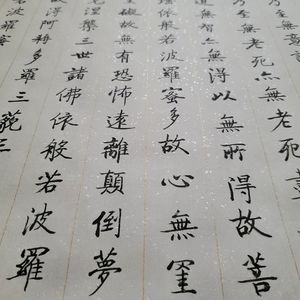 乃至無老死亦無老死
無智亦無得以無所得故菩
依般若波羅蜜多故心無罣
故無有恐怖遠離顛倒夢
涅槃三世諸佛依般若波羅
故得阿耨多羅三藐三
波羅蜜